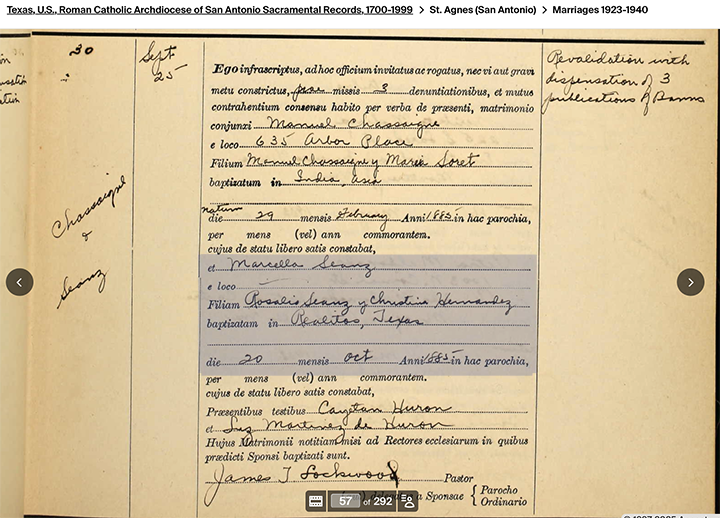 Texas, U.S., Roman Catholic Archdiocese of San Antonio Sacramental Records, 1700-1999 > St. Agnes (San Antonio) > Marriages 1923-1940
30
Sept
25
Chassaigne
&
Seanz
Ego infrascriptus, ad hoc officium invitatus ac rogatus, nec vi aut gravi
metu constrictus, prae missis 3 denuntiationibus, et mutuo
contrahentium consensu habito per verba de præsenti, matrimonio
conjunxi Manuel Chassaigne
e loco 635 Arbor Place
Filium Manuel Chassaigne y Maria Soret
baptizatum in India, Asia
natum
die 29 mensis February Anni 1885 in hac parochia,
per mens (vel) ann commorantem.
cujus de statu libero satis constabat,
et Marcella Seanz
e loco
Filiam Rosalio Seanz y Christina Hernandez
baptizatam in Realitos, Texas
die 20 mensis Oct Anni 1885 in hac parochia,
per mens (vel) ann commorantem.
cujus de statu libero satis constabat,
Præsentibus testibus Cayetan Huron
et Luz Martinez de Huron
Hujus Matrimonii notitiam misi ad Rectores ecclesiarum in quibus
prædicti Sponsi baptizati sunt.
James T Lockwood Pastor
a Sponsae { Parocho
Ordinario
Revalidation with
dispensation of 3
publications of Banns
57 of 292